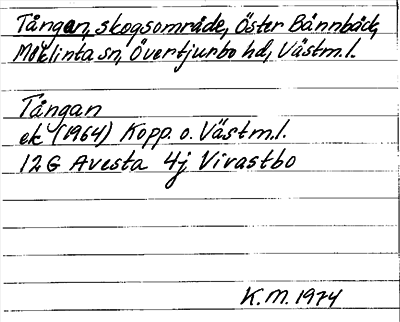 Tångan, skogsområde, Öster Bännbäck,
Möklinta sn, Övertjurbo hd, Västm.l.
Tångan
ek (1964) Kopp. o. Västm.l.
12 G Avesta 4j Virastbo
K.M. 1974